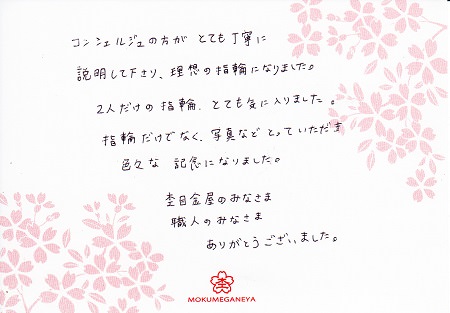 コンシェルジュの方が とても丁寧に
説明して下さり、理想の指輪になりました。
2人だけの指輪、とても気に入りました。
指輪だけでなく、写真など とっていただき
色々な 記念になりました。
杢目金屋のみなさま
職人のみなさま
ありがとうございました。
杢
MOKUMEGANEYA